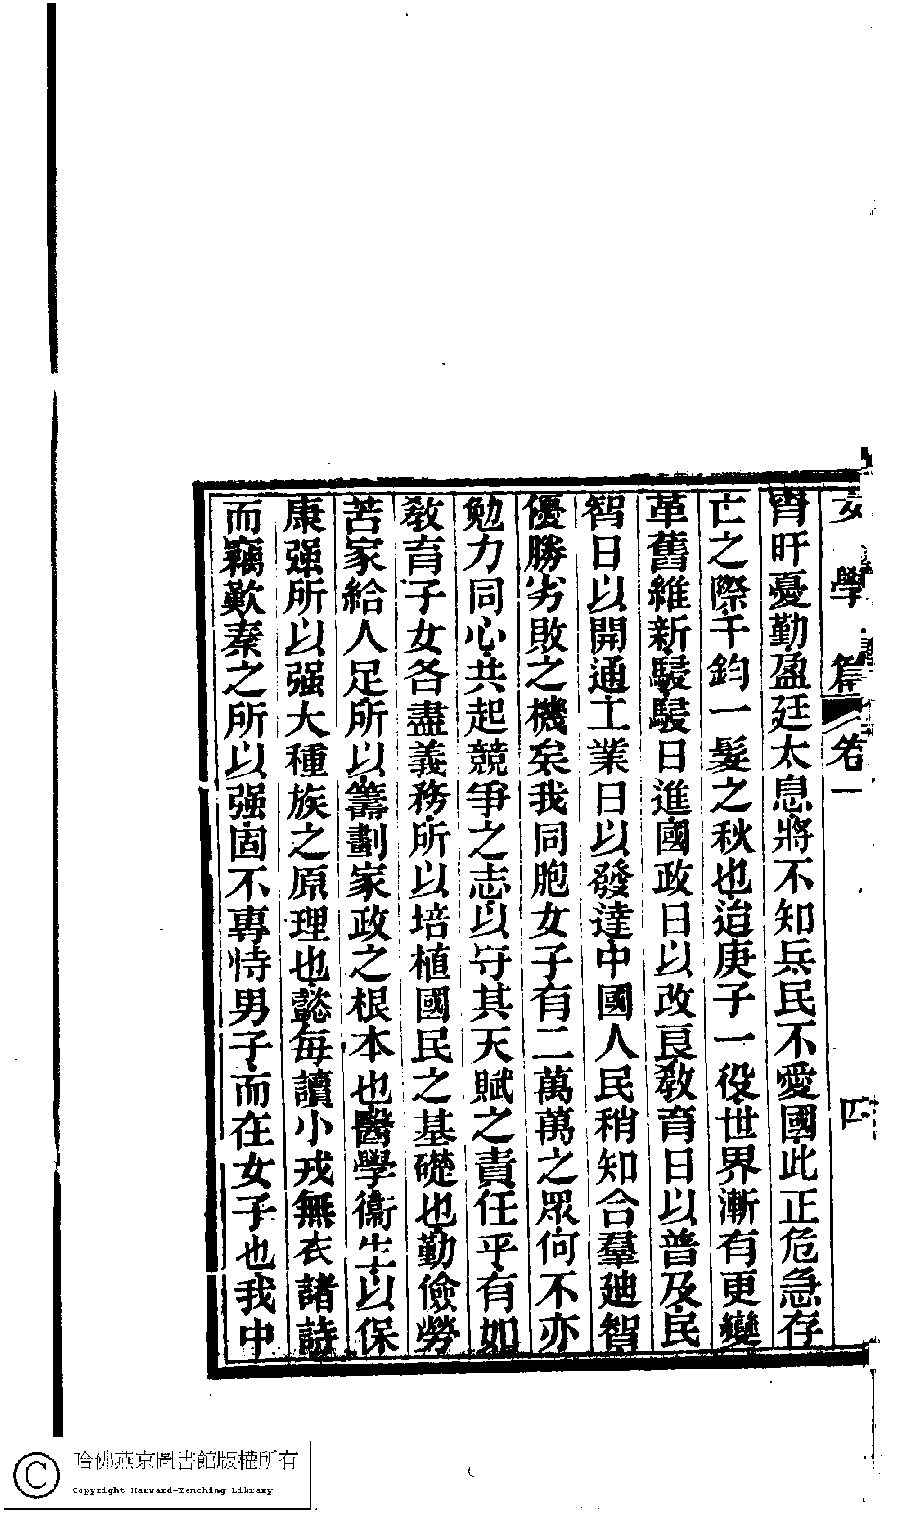 女學篇 卷一 四
宵旰憂勤盈廷太息將不知兵民不愛國此正危急存
亡之際千鈞一髮之秋也迨庚子一役世界漸有更變
革舊維新駸駸日進國政日以改良敎育日以普及民
智日以開通工業日以發達中國人民稍知合羣廸智
優勝劣敗之機矣我同胞女子有二萬萬之眾何不亦
勉力同心共起競爭之志以守其天賦之責任乎有如
敎育子女各盡義務所以培植國民之基礎也勤儉勞
苦家給人足所以籌劃家政之根本也醫學衞生以保
康强所以强大種族之原理也懿每讀小戎無衣諸詩
而竊歎秦之所以强固不專恃男子而在女子也我中
哈佛燕京圖書館版權所有
Copyright Harvard-Yenching Library